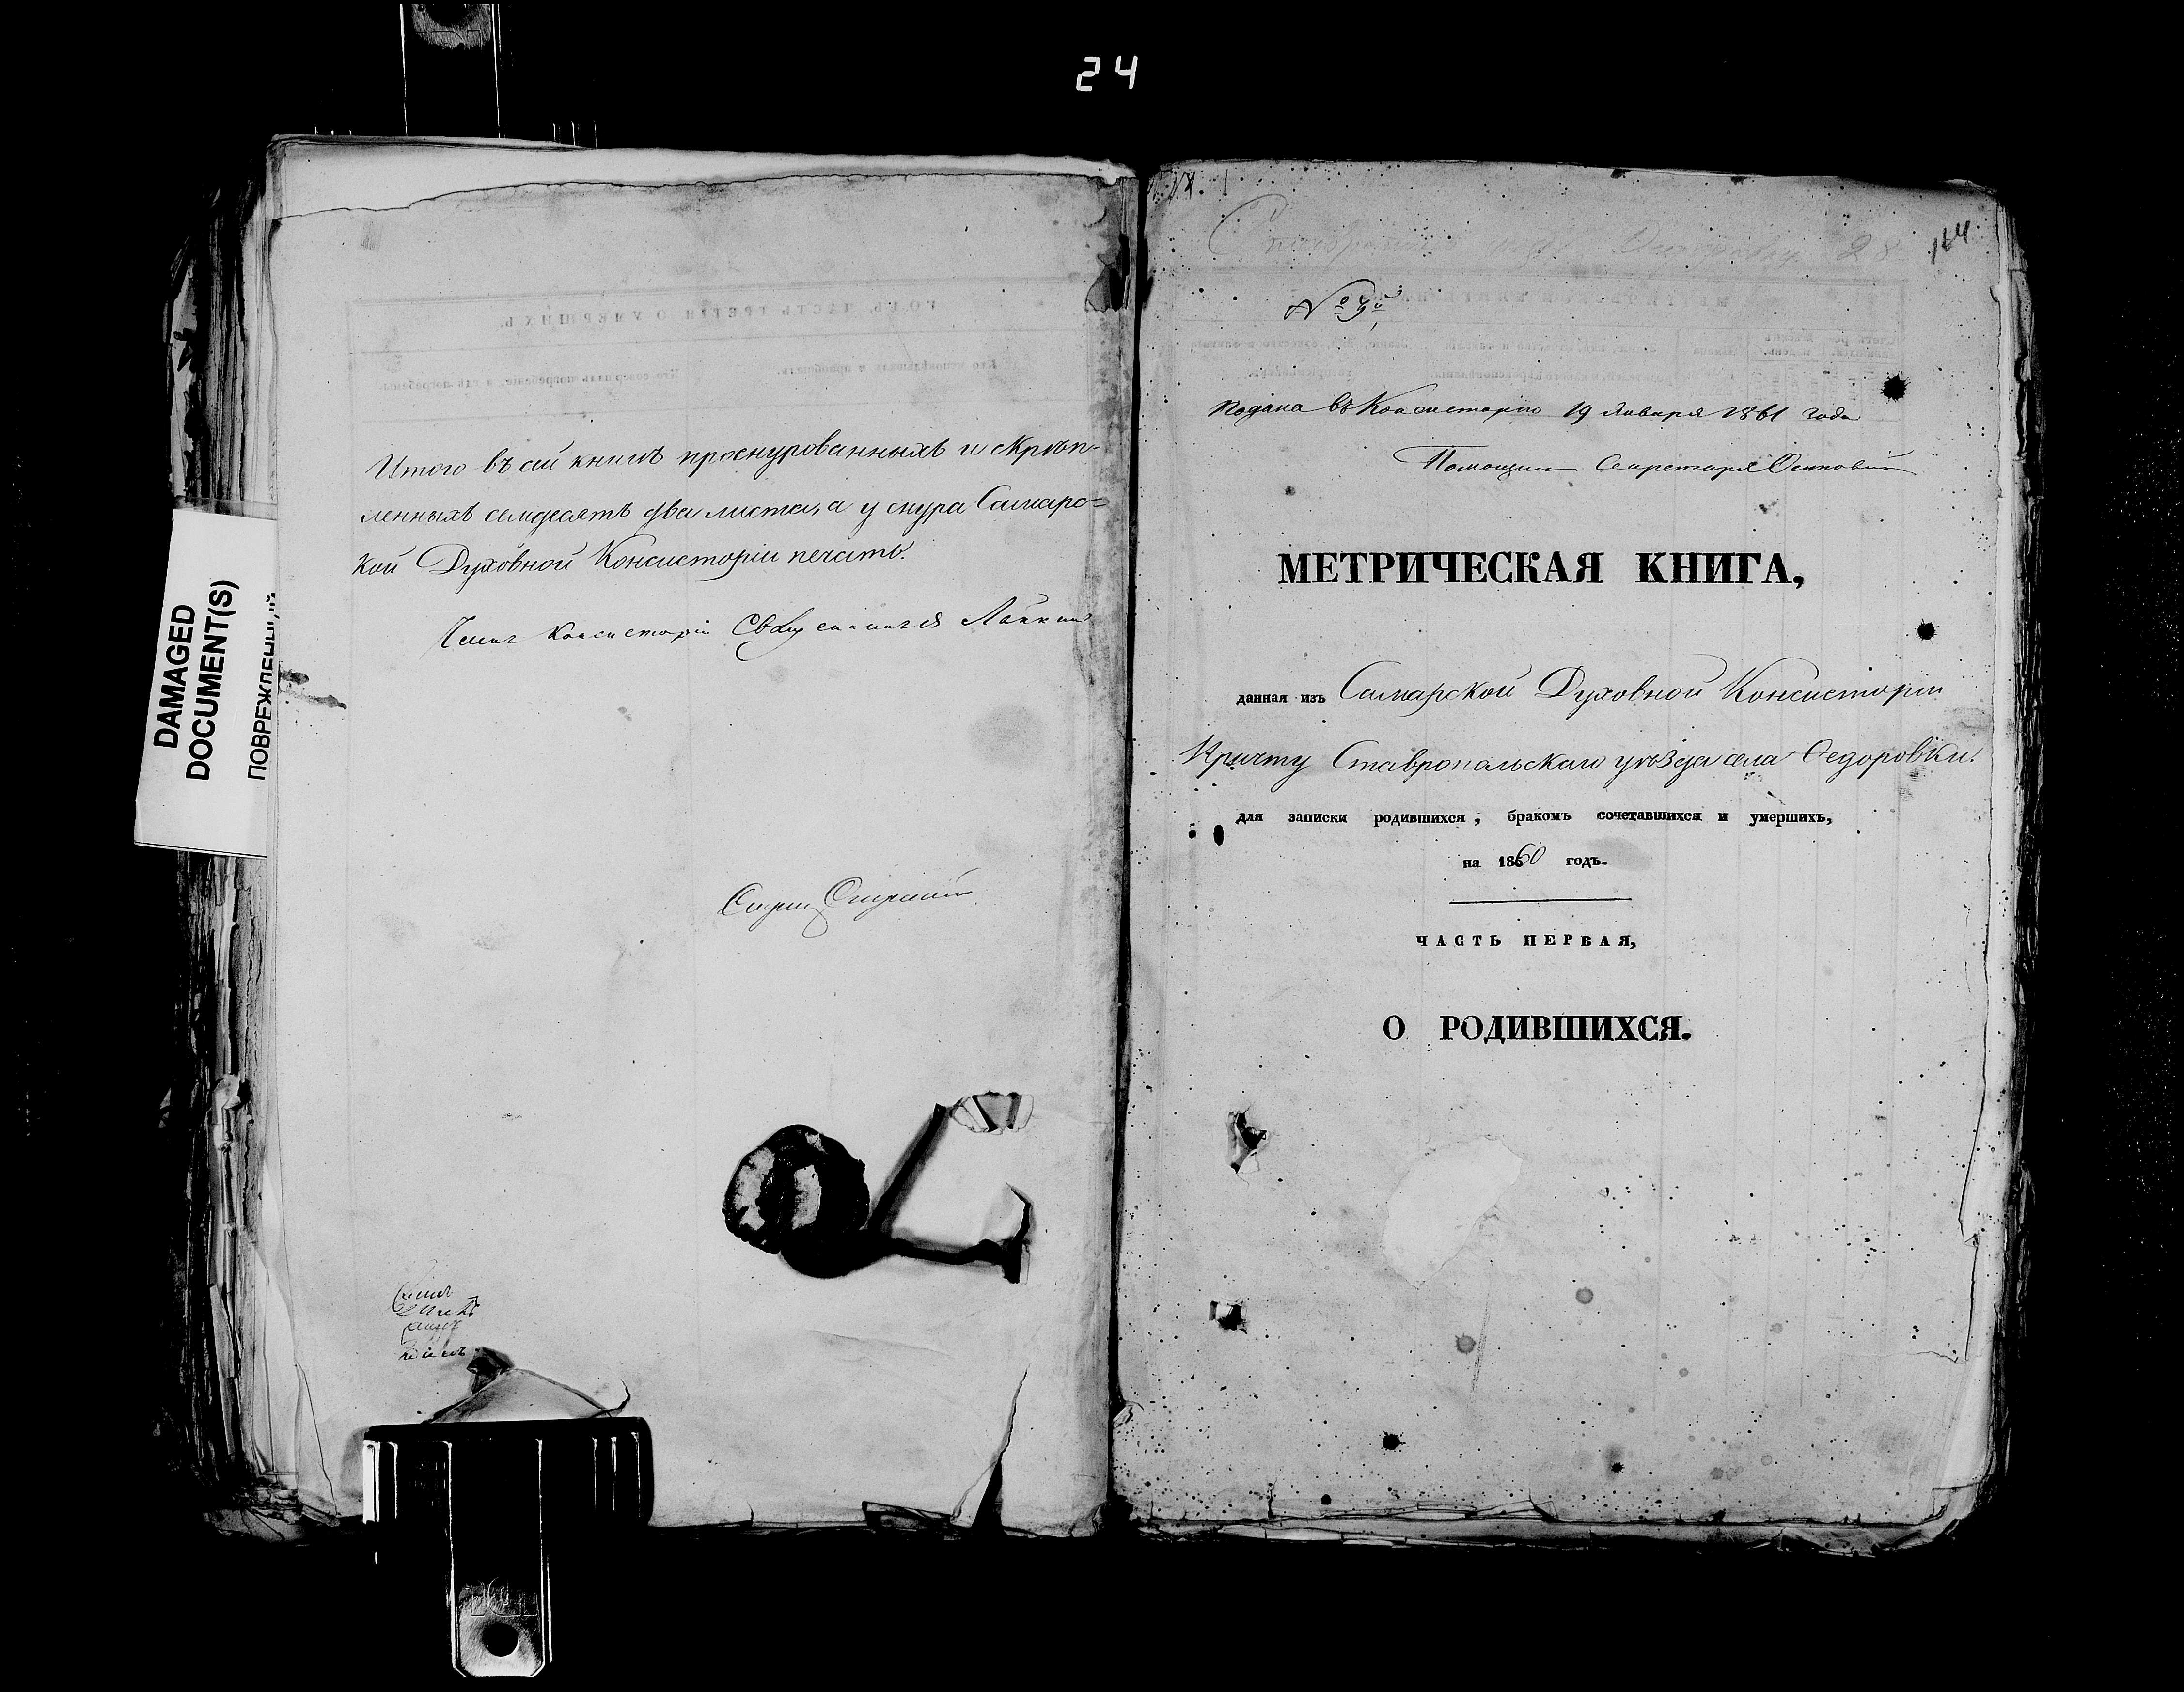 24
DAMAGED
DOCUMENT(S)
ПОВРЕЖДЕННЫЙ
Итого въ сей книгѣ прошнурованныхъ и скрѣп-
ленныхъ семдесятъ два листа, а у снура Самарс-
кой Духовной Консисторіи печать.
Членъ Консисторіи Священникъ
164
Подана въ Консисторію 19 Января 1861 года
Помощникъ Секретаря
МЕТРИЧЕСКАЯ КНИГА,
данная изъ Самарской Духовной Консисторіи
Причту Ставропольскаго уѣзда села Ѳедоровки.
для записки родившихся, бракомъ сочетавшихся и умершихъ,
на 1860 годъ.
ЧАСТЬ ПЕРВАЯ,
О РОДИВШИХСЯ.